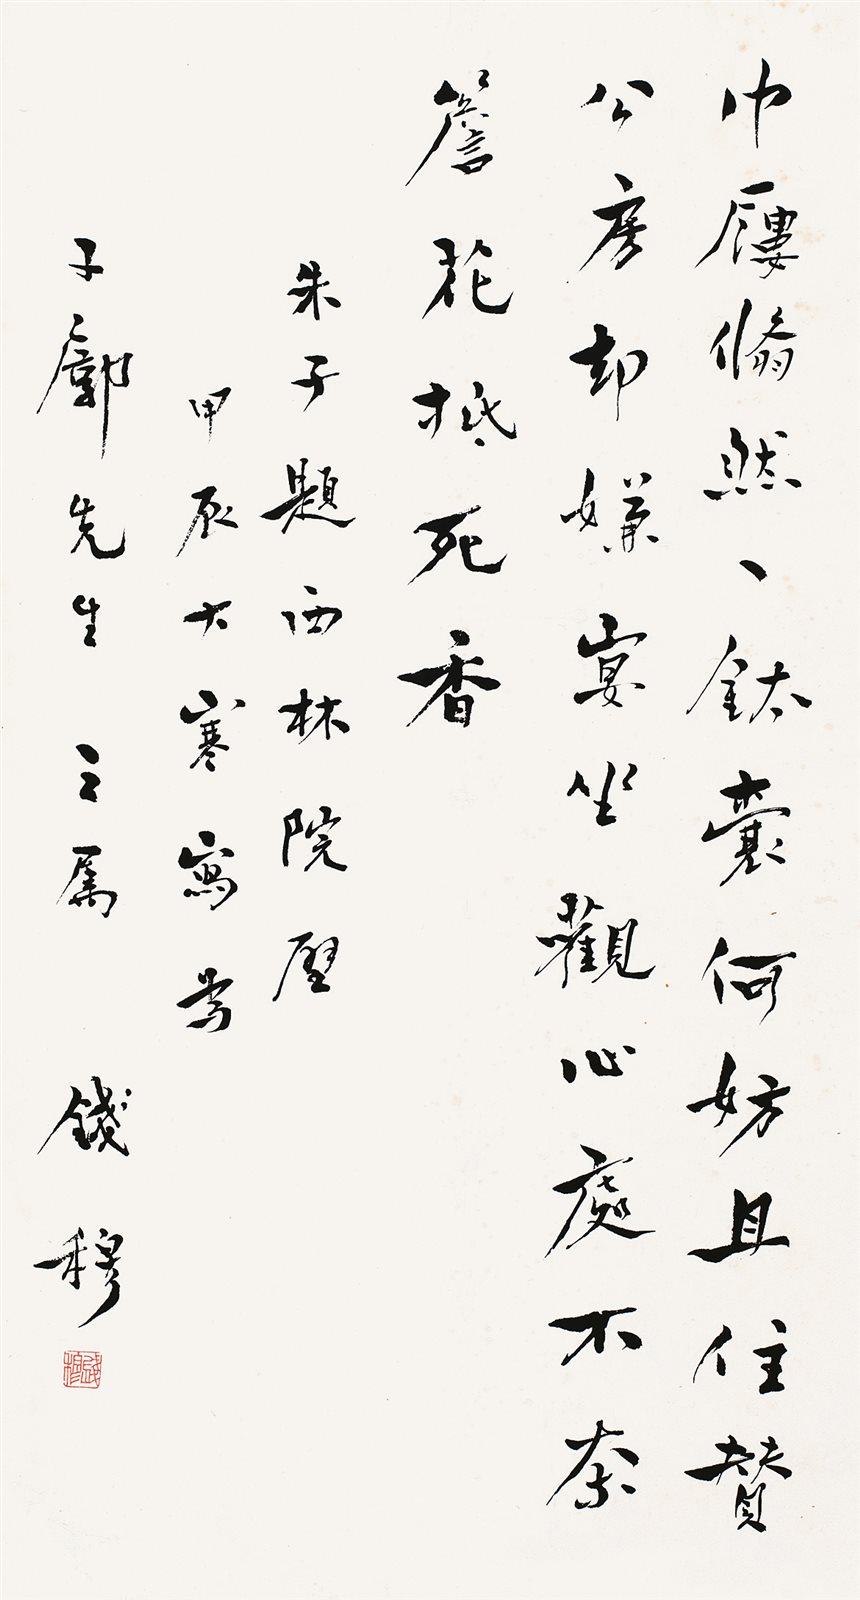 巾屨翛然一鉢囊何妨且住贊
公房却嫌宴坐觀心處不奈
簷花抵死香
朱子題西林院壁
甲辰大寒寫為
子廓先生之属 錢穆
錢穆